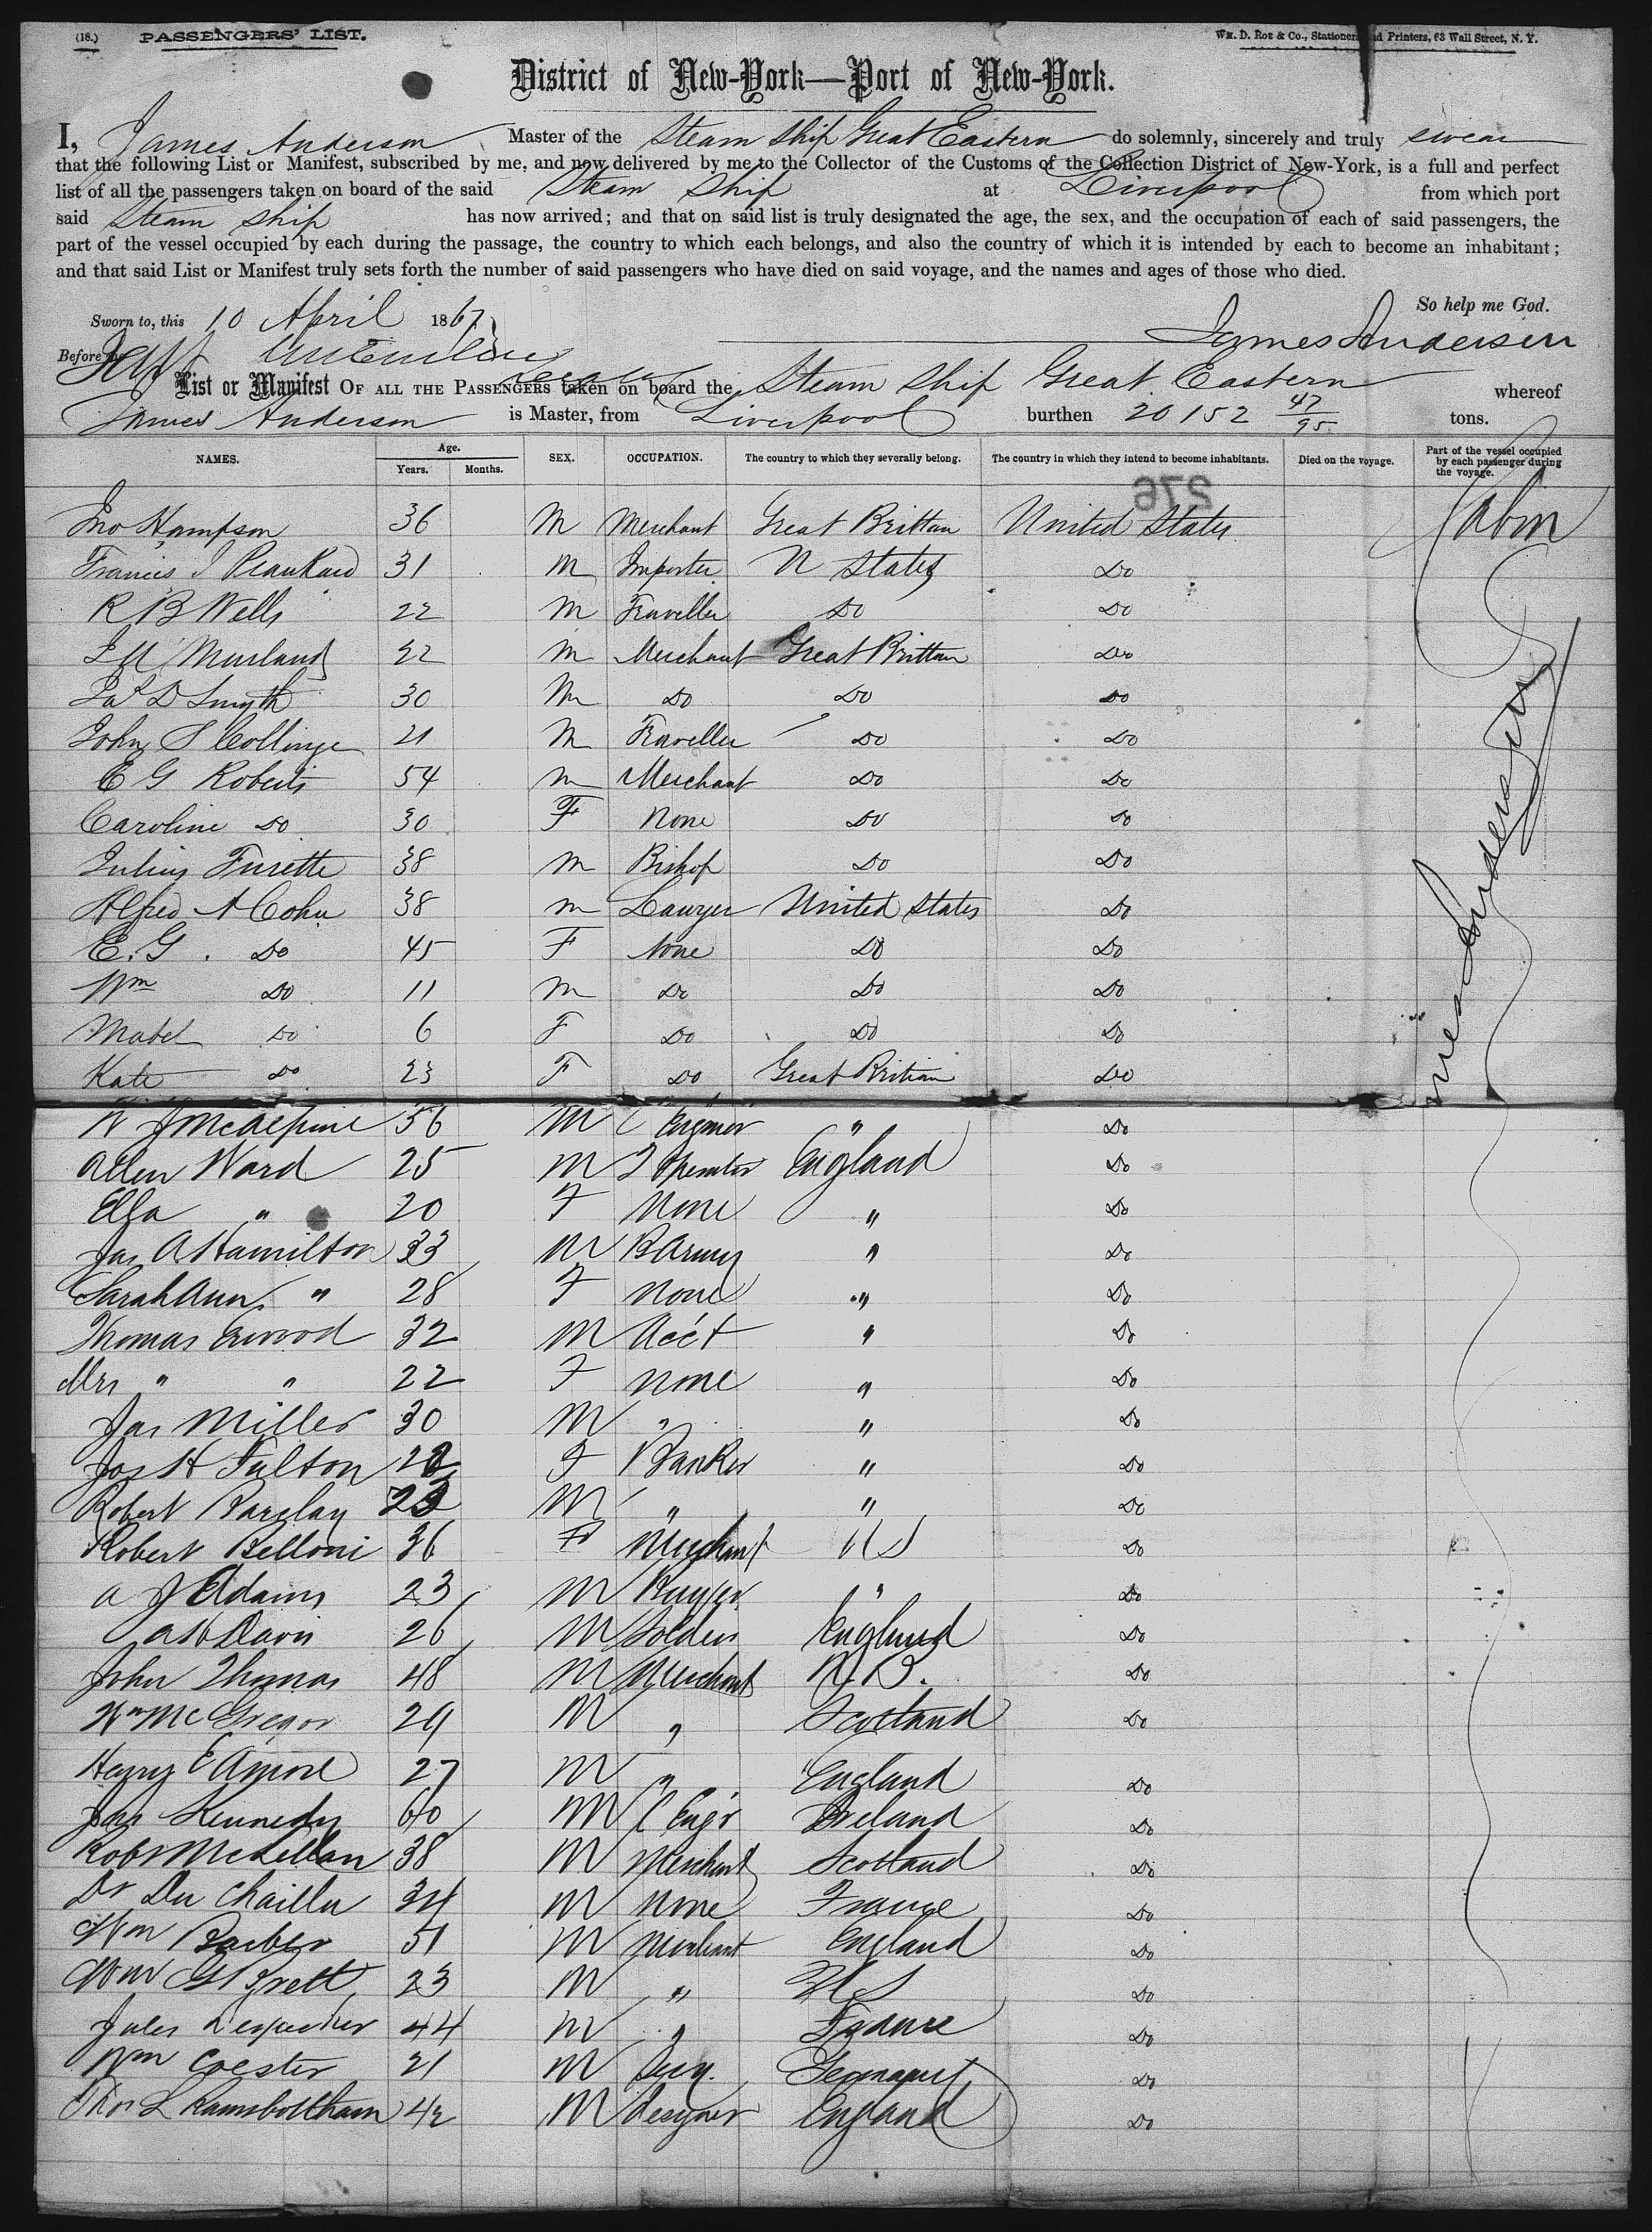 (18.) PASSENGERS' LIST.
Wm. D. Roe & Co., Stationers and Printers, 63 Wall Street, N. Y.
District of New-York—Port of New-York.
I, James Anderson Master of the Steam Ship Great Eastern do solemnly, sincerely and truly swear
that the following List or Manifest, subscribed by me, and now delivered by me to the Collector of the Customs of the Collection District of New-York, is a full and perfect
list of all the passengers taken on board of the said Steam Ship at Liverpool from which port
said Steam Ship has now arrived; and that on said list is truly designated the age, the sex, and the occupation of each of said passengers, the
part of the vessel occupied by each during the passage, the country to which each belongs, and also the country of which it is intended by each to become an inhabitant;
and that said List or Manifest truly sets forth the number of said passengers who have died on said voyage, and the names and ages of those who died.
So help me God.
Sworn to, this 10 April 1867
James Anderson
Before me
List or Manifest OF ALL THE PASSENGERS taken on board the Steam Ship Great Eastern whereof
James Anderson is Master, from Liverpool burthen 20152 47/95 tons.
NAMES. Age. Years. Months. SEX. OCCUPATION. The country to which they severally belong. The country in which they intend to become inhabitants. Died on the voyage. Part of the vessel occupied by each passenger during the voyage.
276
Jno Hampson 36 M Merchant Great Brittan United States Cabin
Francis J 31 M Importer U States Do
R B Wells 22 M Traveller Do Do
Murland 22 M Merchant Great Brittan Do
Jas D Smyth 30 M Do Do Do
John S Collinge 21 M Traveller Do Do
E G Roberts 54 M Merchant Do Do
Caroline Do 30 F None Do Do
Julius Turette 38 M Bishop Do Do
Alfred A Cohn 38 M Lawyer United States Do
E. G. Do 45 F None Do Do
Wm Do 11 M Do Do Do
Mabel Do 6 F Do Do Do
Kate Do 23 F Do Great Britian Do
W J McAlpine 56 M C Engineer " Do
Allen Ward 25 M T Operator England Do
Ella " 20 F None " Do
Jas A Hamilton 33 M B Army " Do
Sarah Ann " 28 F None " Do
Thomas 32 M Acc't " Do
Mrs " " 22 F None " Do
Jas Miller 30 M " " Do
Jos H Fulton F Banker " Do
Robert Barclay 23 M " " Do
Robert Belloni 36 F Merchant U S Do
A J Adams 23 M " Do
A H Davis 26 M Soldier England Do
John Thomas 48 M Merchant N.B. Do
Wm McGregor 29 M " Scotland Do
Henry E 27 M " England Do
Jas Kennedy 60 M C Eng'r Ireland Do
Robt McLellan 38 M Merchant Scotland Do
Dr Du Chaillu 34 M None France Do
Wm Barber 51 M Merchant England Do
Wm G Brett 23 M " U S Do
Jules Despecher 44 M " France Do
Wm Coester 21 M Germany Do
Thos L Ramsbottham 42 M Designer England Do
James Anderson